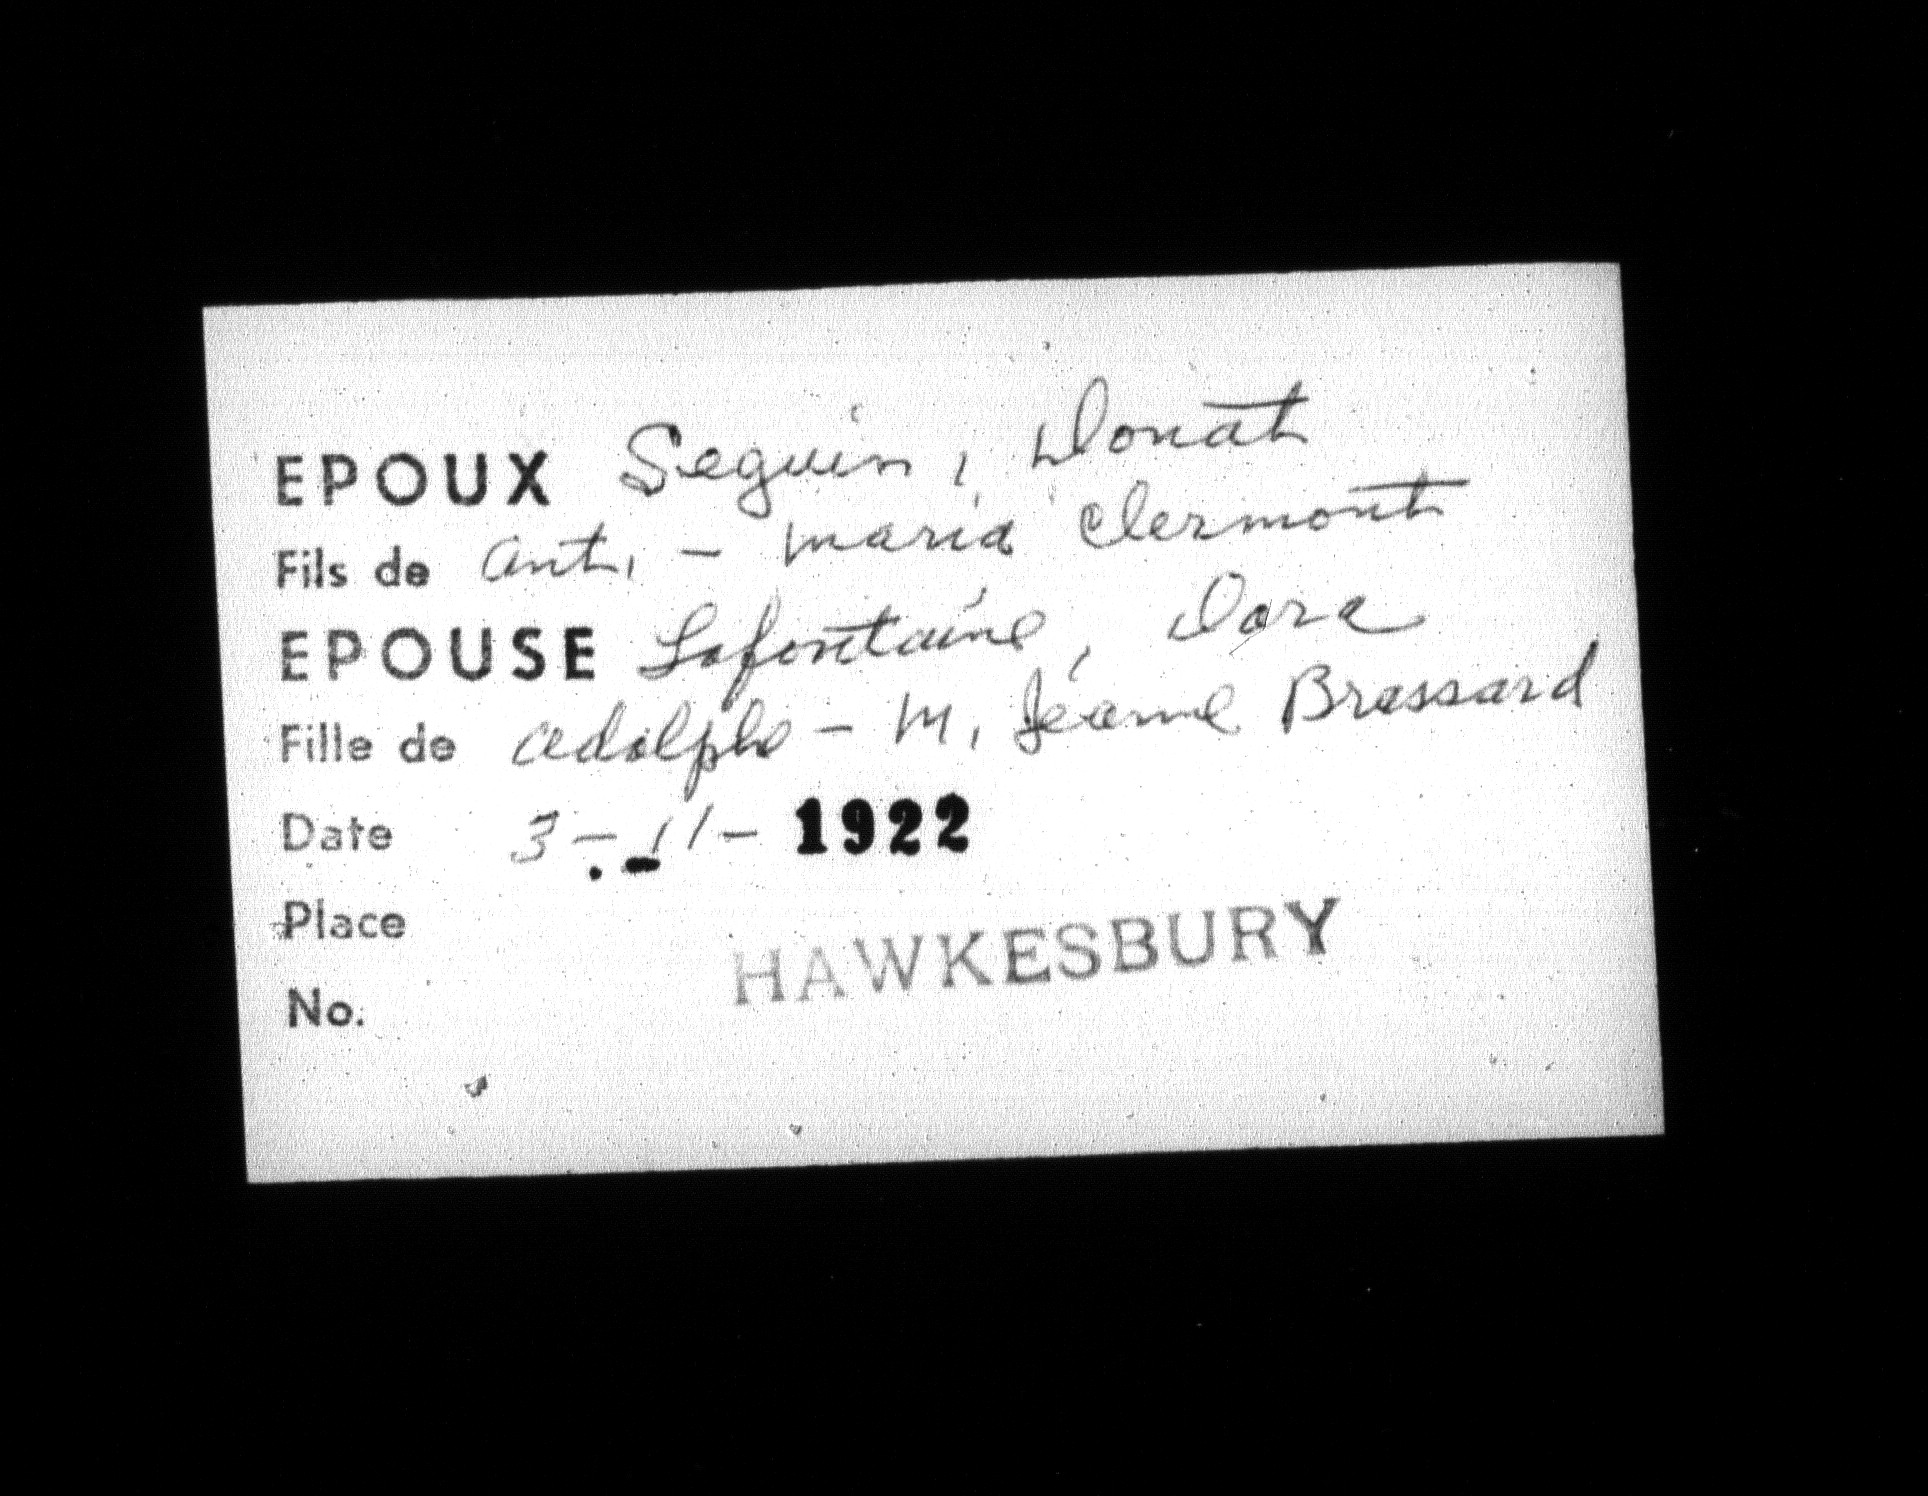 EPOUX Seguin, Donat
Fils de Ant. - Maria Clermont
EPOUSE Lafontaine, Dora
Fille de Adolphe - M. Jeanne Brassard
Date 3-11-1922
Place HAWKESBURY
No.